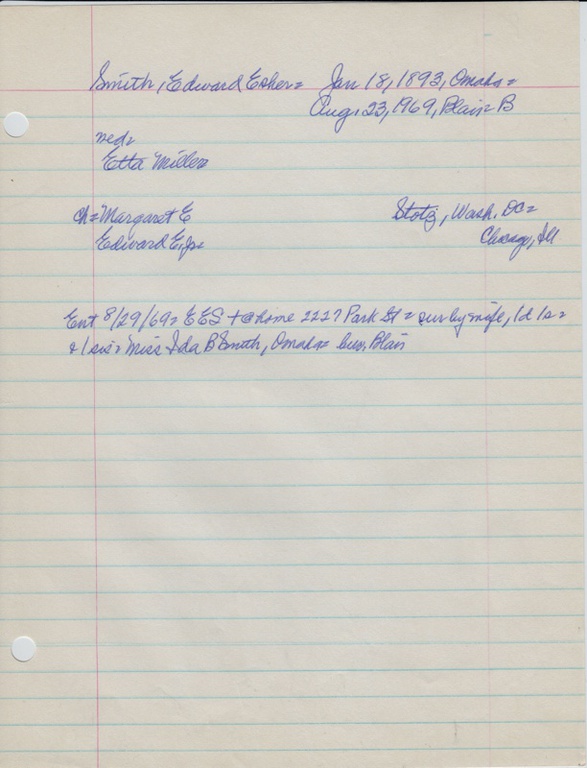 Smith, Edward Esher= Jan 18, 1893, Omaha=
Aug. 23, 1969, Blair B
med=
Etta Miller=
ch= Margaret E Stotz, Wash. DC=
Edward E, Jr= Chicago, Ill
Ent 8/29/69= EES + @ home 2227 Park St= sur by wife, 1d 1s=
& 1 sis= Miss Ida B Smith, Omaha= bur. Blair